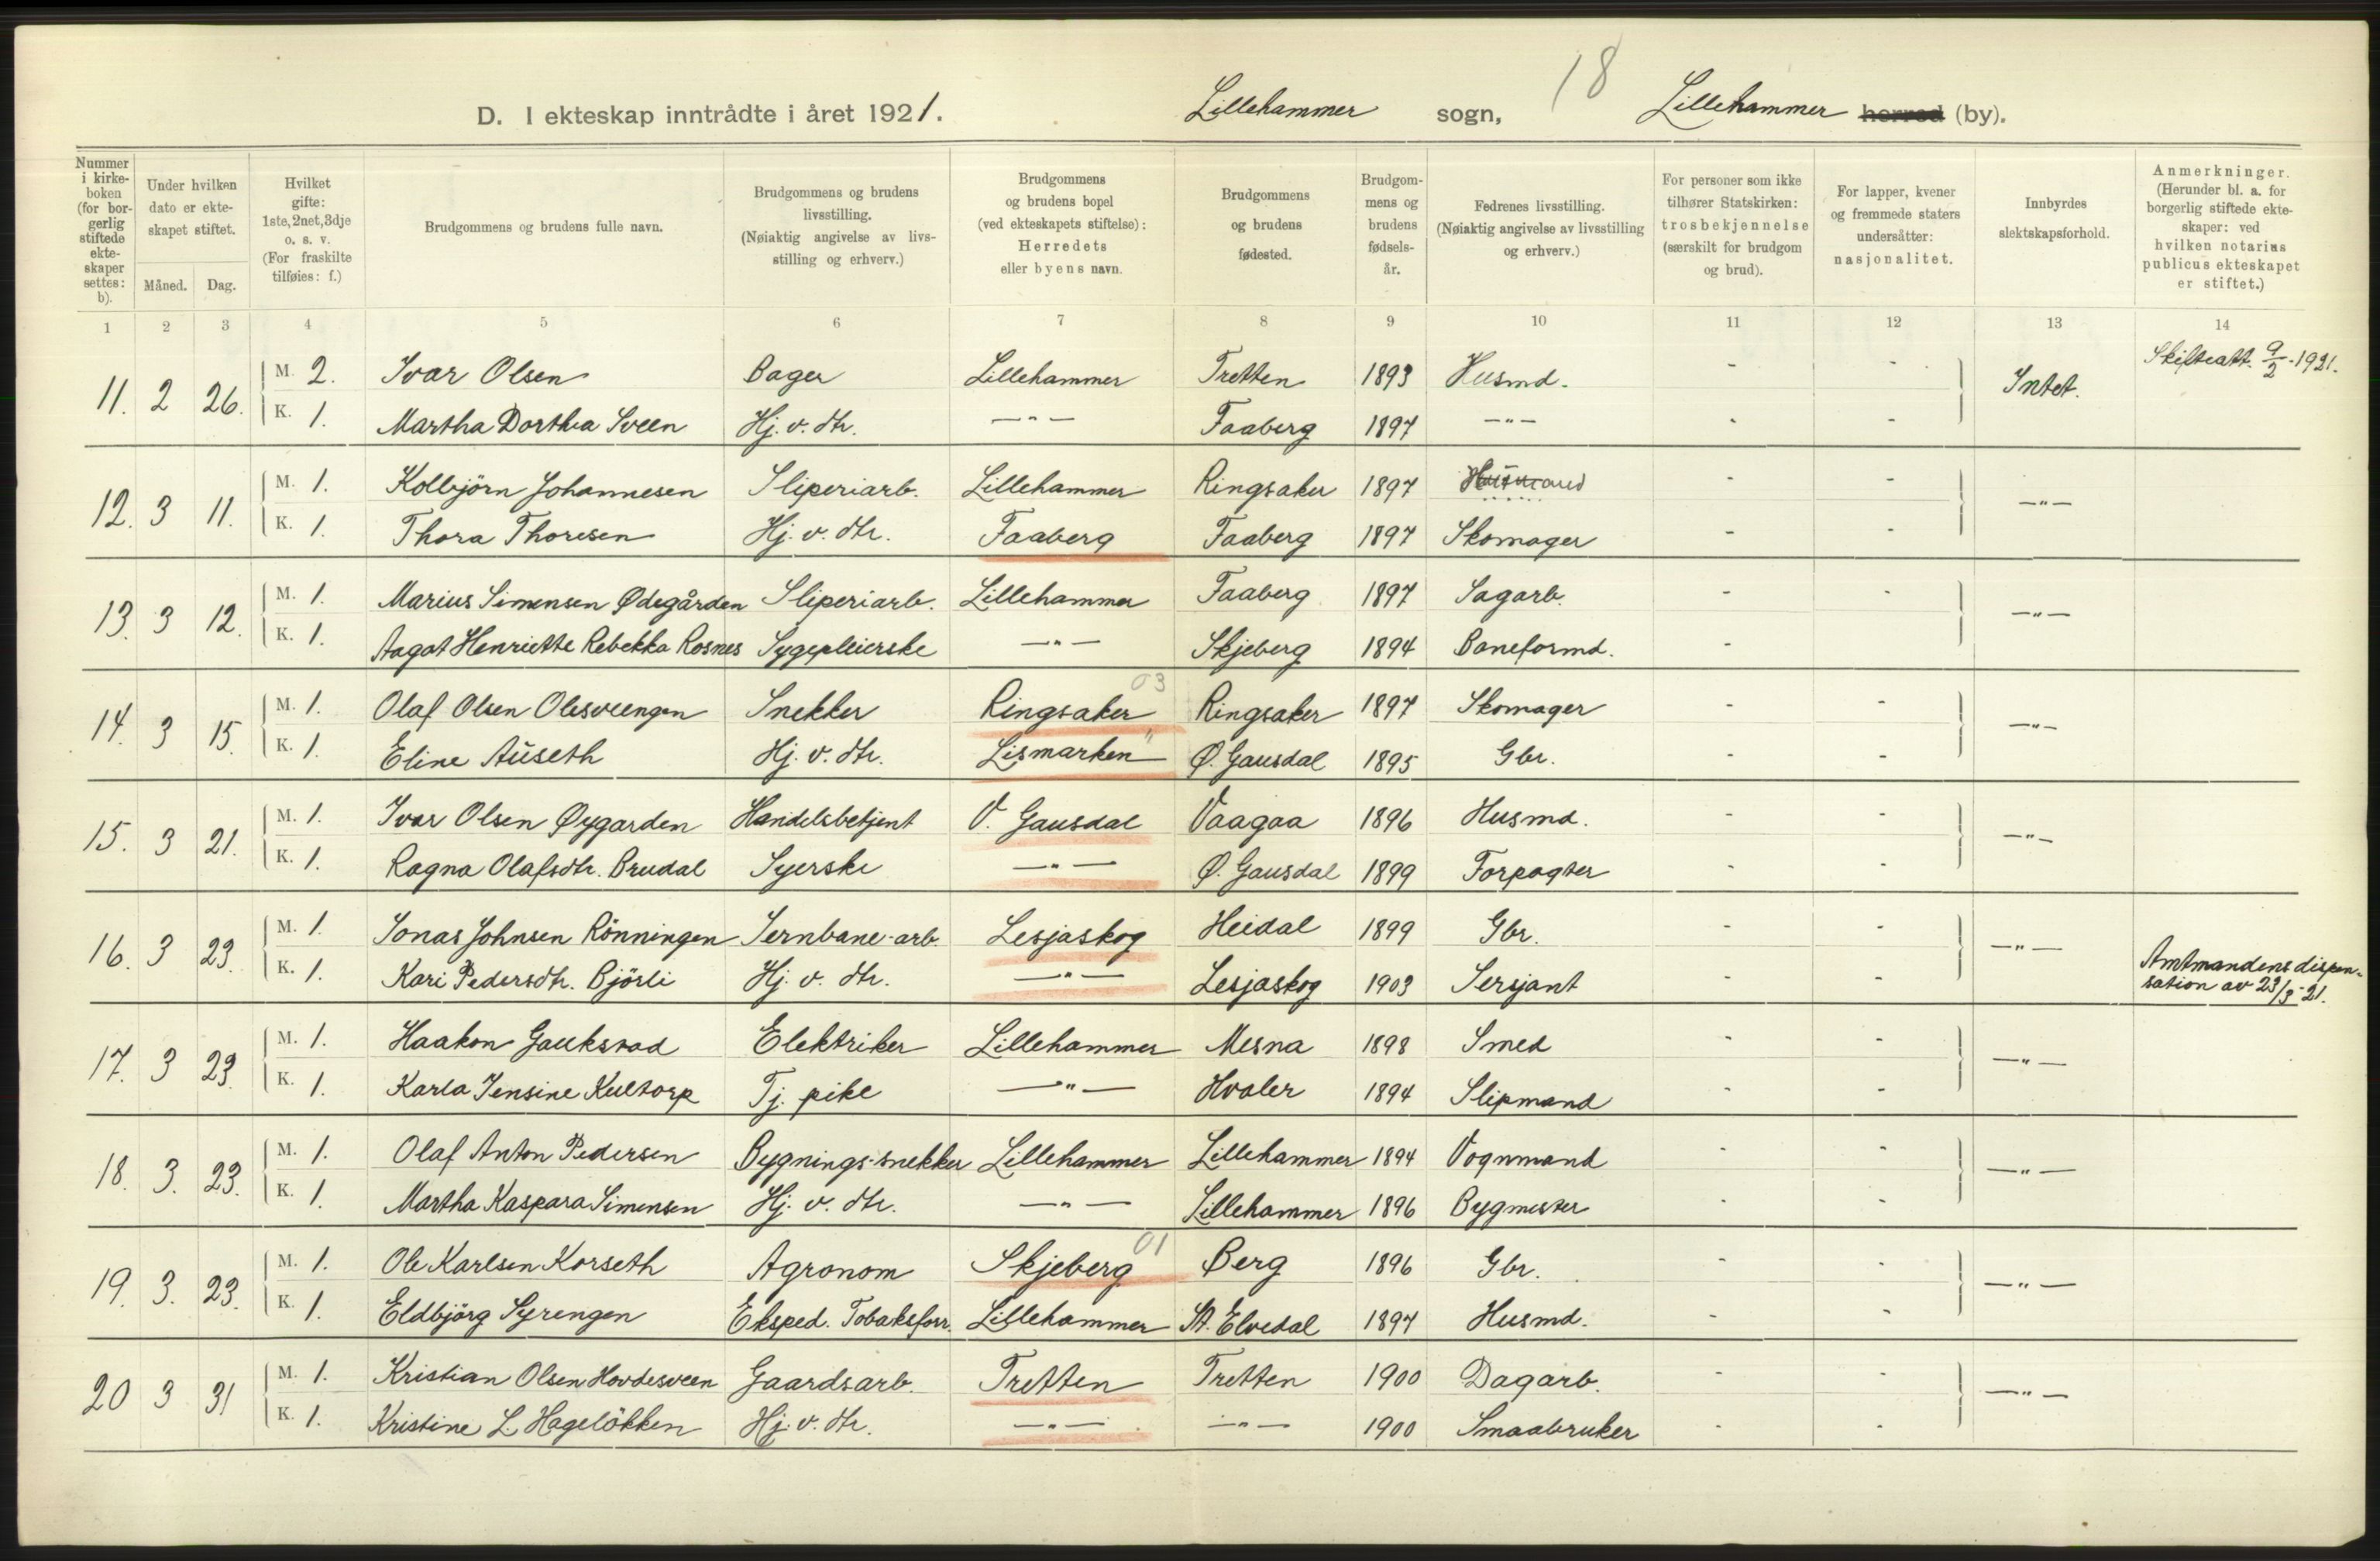 18
D. I ekteskap inntrådte i året 1921. Lillehammer sogn, Lillehammer herred (by).
Nummer i kirkeboken (for borgerlig stiftede ekteskaper settes: b).
Under hvilken dato er ekteskapet stiftet.
Måned. Dag.
Hvilket gifte: 1ste, 2net, 3dje o. s. v. (For fraskilte tilføies: f.)
Brudgommens og brudens fulle navn.
Brudgommens og brudens livsstilling. (Nøiaktig angivelse av livsstilling og erhverv.)
Brudgommens og brudens bopel (ved ekteskapets stiftelse): Herredets eller byens navn.
Brudgommens og brudens fødested.
Brudgommens og brudens fødselsår.
Fedrenes livsstilling. (Nøiaktig angivelse av livsstilling og erhverv.)
For personer som ikke tilhører Statskirken: trosbekjennelse (særskilt for brudgom og brud).
For lapper, kvener og fremmede staters undersåtter: nasjonalitet.
Innbyrdes slektskapsforhold.
Anmerkninger. (Herunder bl. a. for borgerlig stiftede ekteskaper: ved hvilken notarius publicus ekteskapet er stiftet.)
1 2 3 4 5 6 7 8 9 10 11 12 13 14
11. 2 26. M. 2. Ivar Olsen Bager Lillehammer Tretten 1893 Husmd. - - Intet. Skifteatt. 9/2-1921.
K. 1. Martha Dorthea Sveen Hj. v. dtr. —"— Faaberg 1897 —"— - -
12. 3 11. M. 1. Kolbjörn Johannesen Sliperiarb. Lillehammer Ringsaker 1897 Husmand - - —"—
K. 1. Thora Thoresen Hj. v. dtr. Faaberg Faaberg 1897 Skomager - -
13. 3 12. M. 1. Marius Simensen Ødegården Sliperiarb. Lillehammer Faaberg 1897 Sagarb. - - —"—
K. 1. Aagot Henriette Rebekka Rosnes Sygepleierske —"— Skjeberg 1894 Baneformd. -
03
14. 3 15. M. 1. Olaf Olsen Olesveengen Snekker Ringsaker Ringsaker 1897 Skomager - - —"—
K. 1. Eline Auseth Hj. v. dtr. Lismarken " Ø. Gausdal 1895 Gbr. - -
15. 3 21. M. 1. Ivar Olsen Øygarden Handelsbetjent V. Gausdal Vaagaa 1896 Husmd. - - —"—
K. 1. Ragna Olafsdtr. Brudal Syerske —"— Ø. Gausdal 1899 Forpagter - -
16. 3 23. M. 1. Jonas Johnsen Rönningen Jernbane-arb. Lesjaskog Heidal 1899 Gbr. - - —"—
K. 1. Kari Pedersdtr. Björli Hj. v. dtr. —"— Lesjaskog 1903 Sersjant - - Amtmandens dispen-
sation av 23/3-21.
17. 3 23. M. 1. Haakon Gauksrad Elektriker Lillehammer Mesna 1898 Smed - - —"—
K. 1. Karla Jensine Kultorp Tj. pike —"— Hvaler 1894 Slipmand - -
18. 3. 23. M. 1. Olaf Anton Pedersen Bygnings-snekker Lillehammer Lillehammer 1894 Vognmand - - —"—
K. 1. Martha Kaspara Simensen Hj. v. dtr. —"— Lillehammer 1896 Bygmester - -
01
19. 3. 23. M. 1. Ole Karlsen Korseth Agronom Skjeberg Berg 1896 Gbr. - - —"—
K. 1. Eldbjörg Syrengen Eksped. Tobaksforr. Lillehammer St. Elvedal 1897 Husmd. - -
20 3 31 M. 1. Kristian Olsen Hovdesveen Gaardsarb. Tretten Tretten 1900 Dagarb. - - —"—
K. 1. Kristine L. Hagelökken Hj. v. dtr. —"— —"— 1900 Smaabruker - -